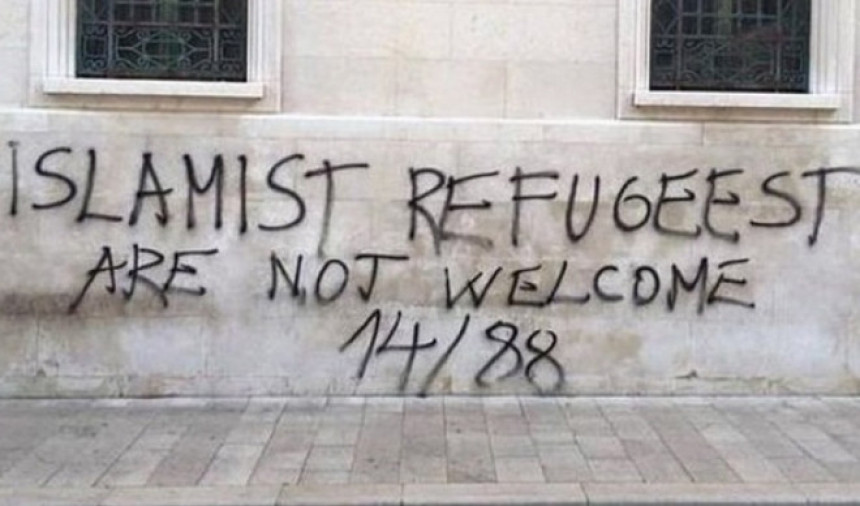 ISLAMIST REFUGEEST
ARE NOT WELCOME
14/88